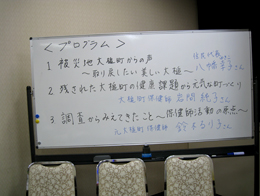 ＜プログラム＞
1 被災地大槌町からの声
住民代表
八幡 さん
～取り戻したい美しい大槌～
2 残された大槌町の健康課題から元気な町づくり
大槌町保健師 岩間純子さん
3 調査からみえてきたこと～保健師活動の原点～
元大槌町保健師 鈴木るり子さん